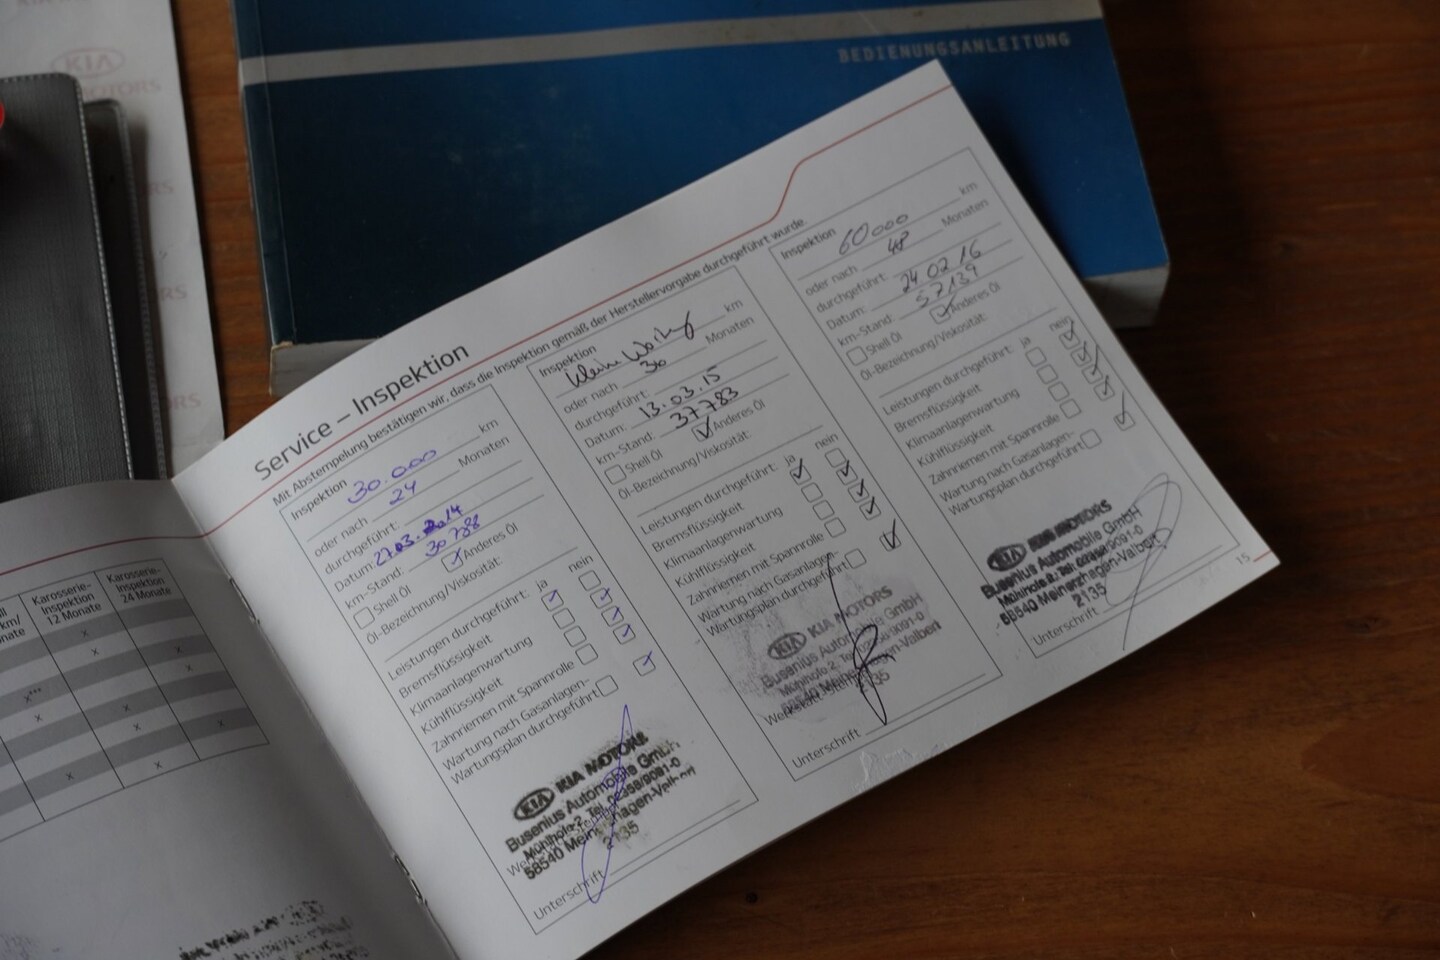 KIA
MOTORS
BEDIENUNGSANLEITUNG
km/
Karosserie-
Inspektion
12 Monate
Karosserie-
Inspektion
24 Monate
Service – Inspektion
Mit Abstempelung bestätigen wir, dass die Inspektion gemäß der Herstellervorgabe durchgeführt wurde.
Inspektion 30.000 km
oder nach 24 Monaten
durchgeführt:
Datum: 27.03.2014
km-Stand: 30788
Shell Öl Anderes Öl
Öl-Bezeichnung/Viskosität:
Leistungen durchgeführt: ja nein
Bremsflüssigkeit
Klimaanlagenwartung
Kühlflüssigkeit
Zahnriemen mit Spannrolle
Wartung nach Gasanlagen-
Wartungsplan durchgeführt
KIA KIA MOTORS
Busenius Automobile GmbH
Mühlhofe 2, Tel. 02358/9091-0
58540 Meinerzhagen-Valbert
2135
Unterschrift
Inspektion km
oder nach 36 Monaten
durchgeführt:
Datum: 13.03.15
km-Stand: 37783
Shell Öl Anderes Öl
Öl-Bezeichnung/Viskosität:
Leistungen durchgeführt: ja nein
Bremsflüssigkeit
Klimaanlagenwartung
Kühlflüssigkeit
Zahnriemen mit Spannrolle
Wartung nach Gasanlagen-
Wartungsplan durchgeführt
KIA KIA MOTORS
Busenius Automobile GmbH
Mühlhofe 2, Tel. 02358/9091-0
58540 Meinerzhagen-Valbert
2135
Unterschrift
Inspektion 60000 km
oder nach 48 Monaten
durchgeführt:
Datum: 24 02 16
km-Stand: 57139
Shell Öl Anderes Öl
Öl-Bezeichnung/Viskosität:
Leistungen durchgeführt: ja nein
Bremsflüssigkeit
Klimaanlagenwartung
Kühlflüssigkeit
Zahnriemen mit Spannrolle
Wartung nach Gasanlagen-
Wartungsplan durchgeführt
KIA KIA MOTORS
Busenius Automobile GmbH
Mühlhofe 2, Tel. 02358/9091-0
58540 Meinerzhagen-Valbert
2135
Unterschrift
15